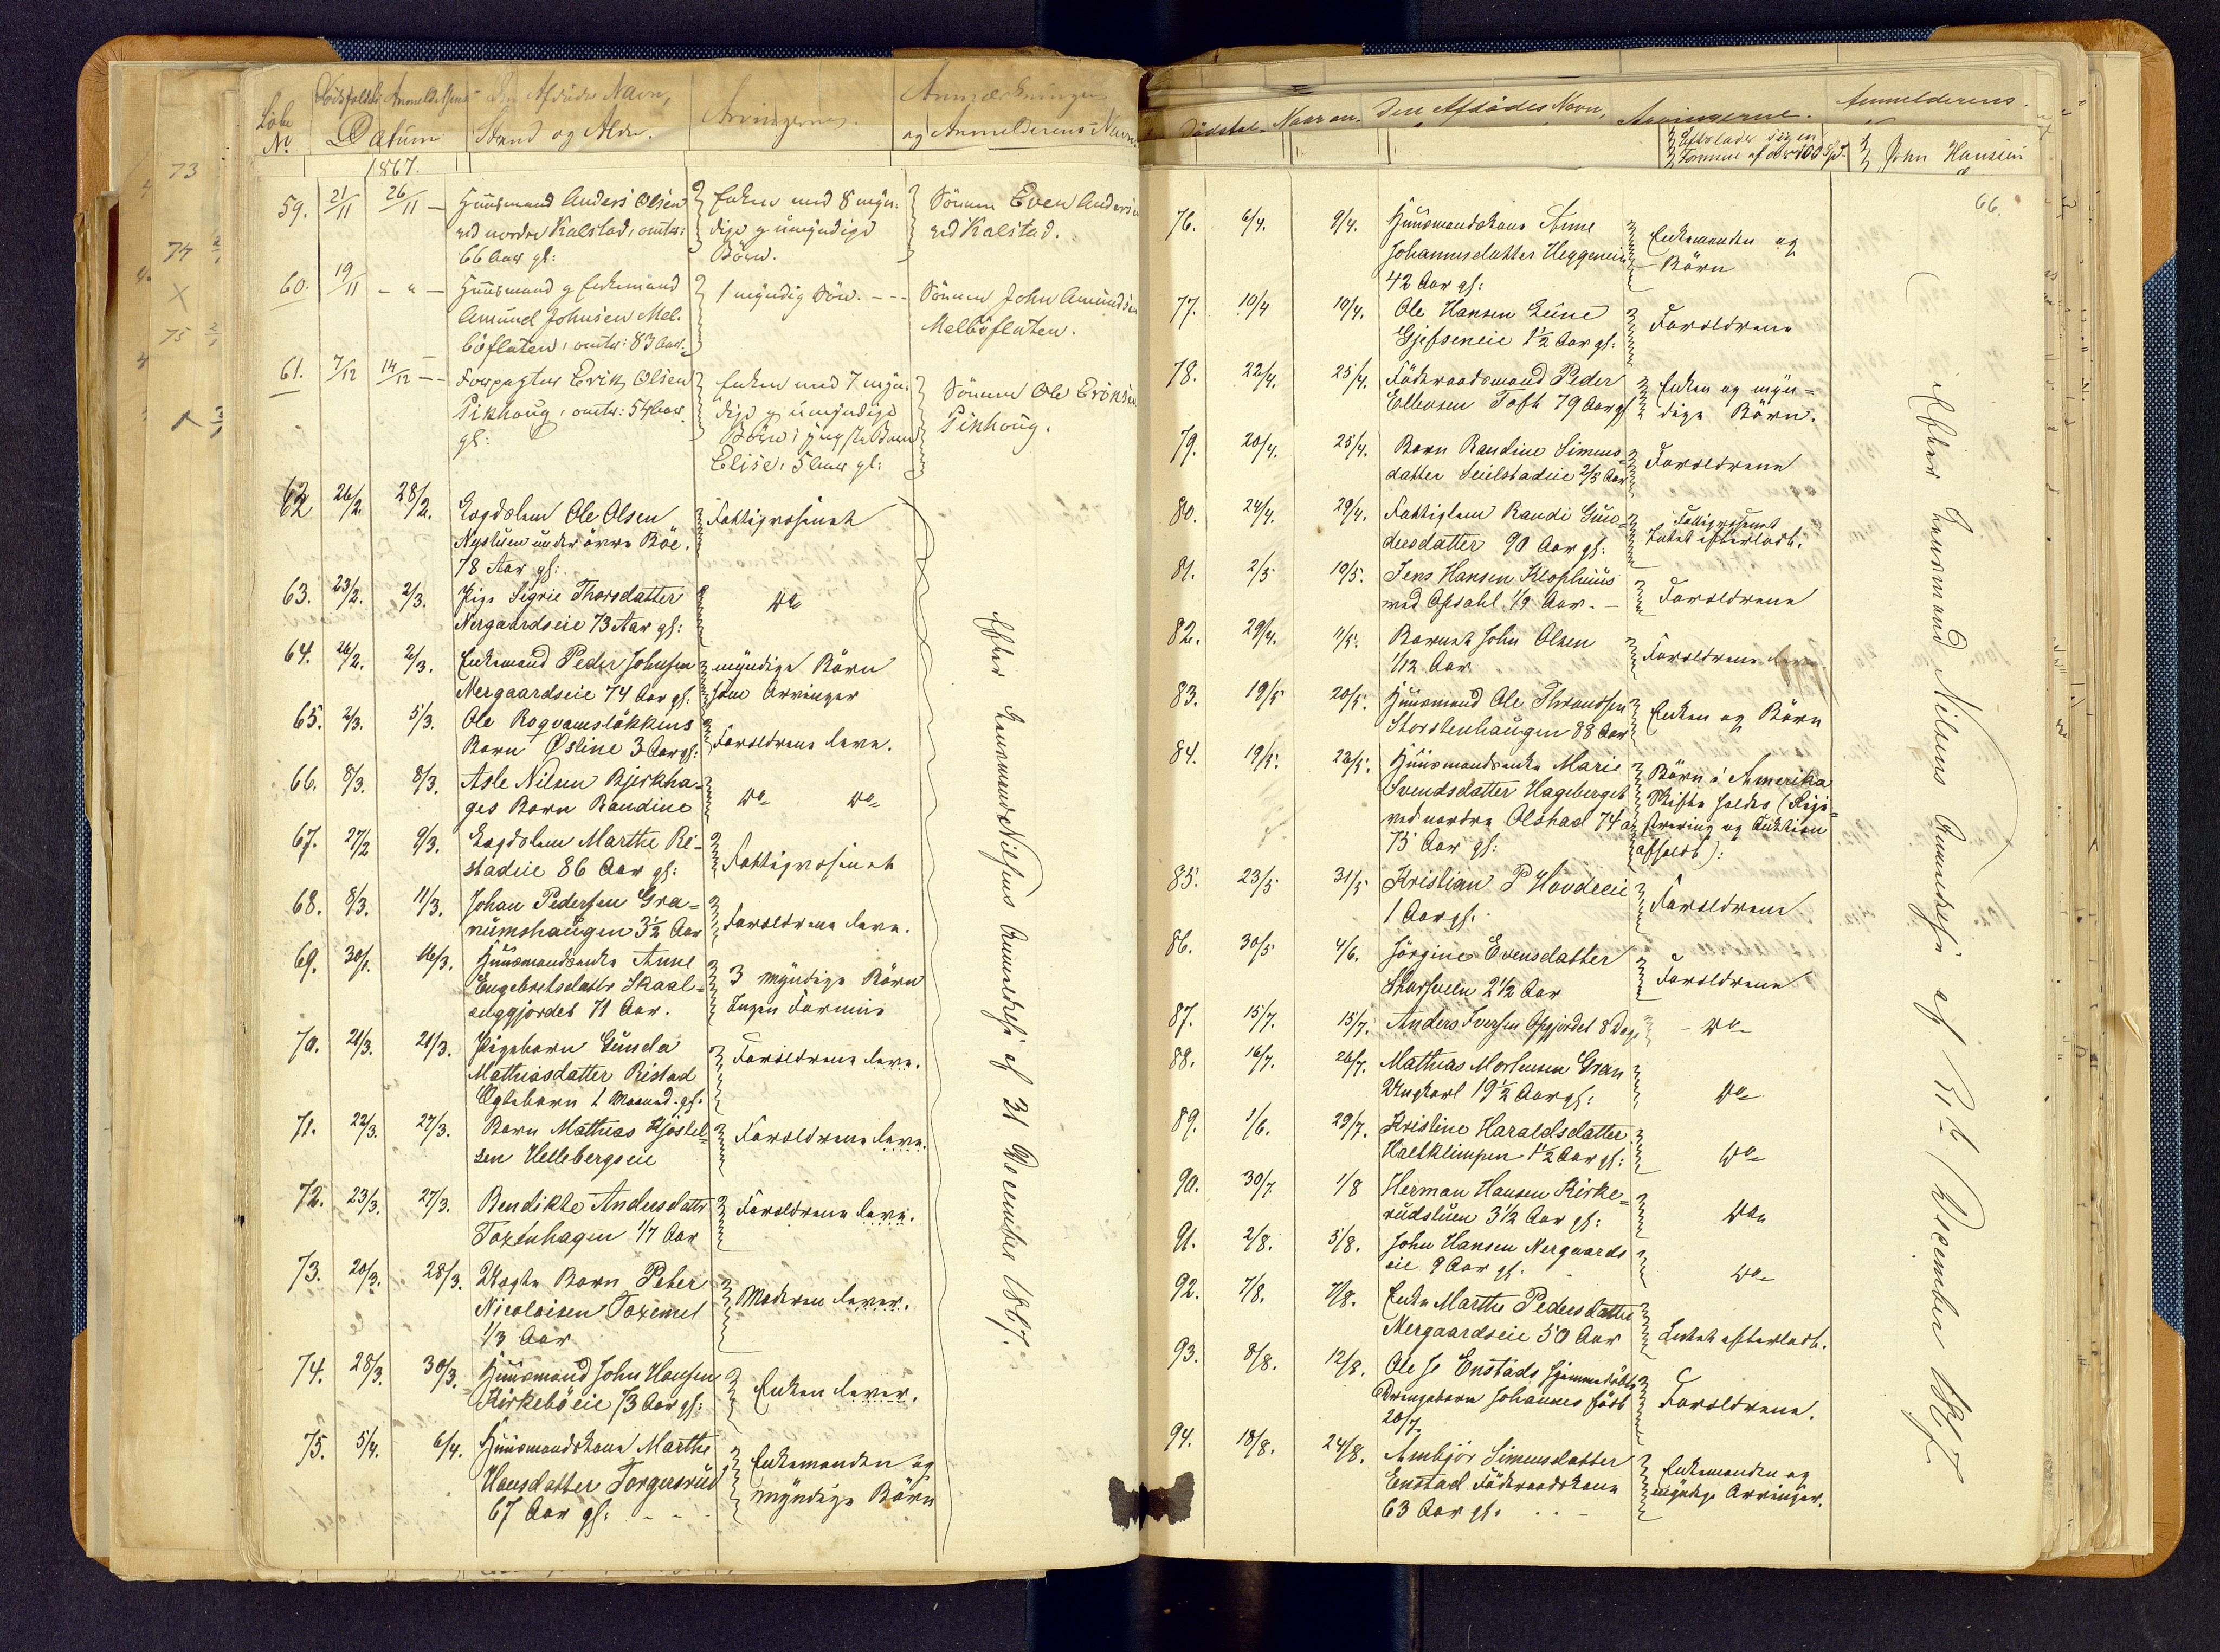 Löbe No.
Dödsfaldets Anmeldelsens
Datum
Den Afdödes Navn,
Stand og Alder.
Arvingerne.
Anmærkninger
og Anmelderens Navn
1867.
59. 21/11 26/11 — Huusmand Anders Olsen
ved nordre Kalstad, omtr:
66 Aar gl:
Enken med 8 myn-
dige g umyndige
Börn.
Sönnen Even Andersen
ved Kalstad.
60. 19/11 - " - Huusmand g Enkemand
Amund Johnsen Mel-
böflaten, omtr: 83 Aar.
1 myndig Sön. - - -
Sönnen John Amundsen
Melböflaten.
61. 7/12 14/12 - - Forpagter Erik Olsen
Pikhoug, omtr: 54 Aar
gl:
Enken med 7 myn-
dige g umyndige
Börn; yngste Barn
Elise, 5 Aar gl:
Sönnen Ole Eriksen
Pikhoug.
62 26/2. 28/2. Lægdslem Ole Olsen
Nystuen under övre Böe.
78 Aar gl:
Fattigvæsenet
63. 23/2. 2/3. Pige Sigrie Thorsdatter
Nergaardseie 73 Aar gl:
Do
64. 26/2. 2/3. Enkemand Peder Johnsen
Mergaardseie 74 Aar gl:
myndige Börn
som Arvinger
65. 2/3. 5/3. Ole Rogvamslökkens
Barn Østine 3 Aar gl:
Forældrene leve.
66. 8/3. 8/3. Asle Nilsen Bjerkha-
ges Barn Randine
Do Do
67. 27/2 9/3. Lægdslem Marthe Ri-
stadeie 86 Aar gl:
Fattigvæsenet
68. 8/3. 11/3. Johan Pedersen Gra-
rumshaugen 3½ Aar
Forældrene leve.
69. 30/1. 16/3. Huusmandsenke Anne
Engebretsdatter Skaal-
enggjordet 71 Aar.
3 myndige Börn
Ingen Formue
70. 21/3. 21/3. Pigebarn Gunda
Mathiasdatter Ristad
Ægtebarn 1 Maaned gl.
Forældrene leve.
71. 22/3. 27/3. Barn Mathias Kjöstel-
sen Hellebergseie
Forældrene leve.
72. 23/3. 27/3. Bendikte Andersdatter
Toxenhagen 1/7 Aar
Forældrene leve.
73. 20/3. 28/3. Uægte Barn Peter
Nicolaisen Toxemel
1/3 Aar
Moderen lever.
74. 28/3. 30/3. Huusmand John Hansen
Kirkeböeie 73 Aar gl:
Enken lever.
75. 5/4. 6/4. Huusmandskone Marthe
Hansdatter Torgersrud
67 Aar gl: - -
Enkemanden og
myndige Börn
Efter Lensmand Nilsens Anmeldelse af 31 December 1867.
Dödsfal. Naar an.
Den Afdödes Navn,
Arvingerne.
Anmelderens
Efterlader sig en
Formue af over 100 Spd.
John Hansen
66.
76. 6/4. 9/4. Huusmandskone Anne
Johannesdatter Heggeneie
42 Aar gl:
Enkemanden og
Börn
77. 10/4 10/4. Ole Hansen Lune
Gjefseneie 1½ Aar gl:
Forældrene
78. 22/4. 25/4. Föderaadsmand Peder
Ellevsen Toft 79 Aar gl
Enken og myn-
dige Börn.
79. 20/4. 25/4. Barn Randine Simens-
datter Seielstadeie 2/5 Aar
Forældrene
80. 24/4. 29/4. Fattiglem Randi Gun-
dersdatter 90 Aar gl:
Fattigvæsenet
Intet efterladt.
81. 2/5 10/5. Jens Hansen Klophuus
ved Opdahl 1/9 Aar. -
Forældrene
82. 29/4. 11/5. Barnet John Olsen
1/12 Aar
Forældrene
83. 19/5 20/5. Huusmand Ole Throndsen
Storstenhaugen 88 Aar
Enken og Börn
84. 19/5. 22/5. Huusmandsenke Marie
Svendsdatter Hageberget
ved nordre Olstad 74 a
75 Aar gl:
Börn i Amerika
Skifte holdes (Regi-
strering og Auktion
afholdt):
85. 23/5 31/5 Kristian P Hovdeeie
1 Aar gl.
Forældrene
86. 30/5 4/6. Jörgine Evensdatter
2½ Aar
Forældrene
87. 15/7. 15/7. Anders Iversen Opgjordet 8 Dage
- Do -
88. 16/7. 26/7. Mathias Mortensen Gran
Ungkarl 19½ Aar gl:
Do
89. 1/6. 29/7. Kristine Haraldsdatter
Haeklimpen 1½ Aar gl:
Do
90. 30/7. 1/8 Herman Hansen Kirke-
rudstuen 3½ Aar gl:
Do
91. 2/8. 5/8. John Hansen Nergaards
eie 9 Aar gl.
Do
92. 7/8. 7/8. Enke Marthe Pedersdatter
Mergaardseie 50 Aar
Intet efterladt.
93. 8/8. 12/8. Ole Js Enstads hjemmedöbte
Drengebarn Johannes födt
20/7.
Forældrene.
94. 18/8. 24/8. Ambjör Simensdatter
Enstad Föderaadskone
63 Aar gl.
Enkemanden og
myndige Arvinger.
Efter Lensmand Nilsens Anmeldelse af 31te December 1867